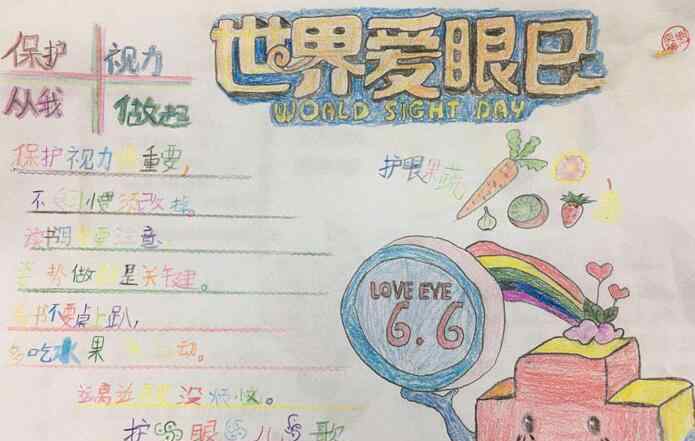 世界爱眼日
WORLD SIGHT DAY
保护视力
从我做起
保护视力 重要,
不 习惯 须改掉。
读书 要注意,
姿势做 是关键。
书不要桌上趴,
多吃水果 动。
远离近 没烦恼。
护眼儿歌
护眼果蔬
LOVE EYE
6.6